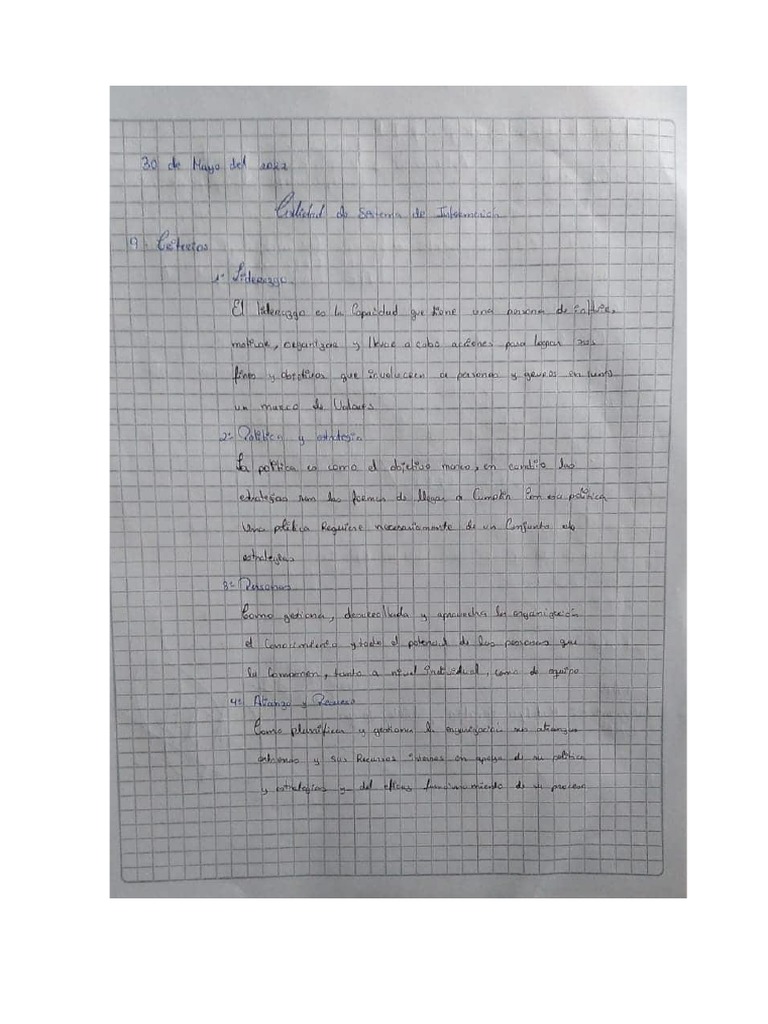 30 de Mayo del 2022
Calidad de Sistema de Información
9- Criterios
1- Liderazgo
El liderazgo es la Capacidad que tiene una persona de influir,
motivar, organizar y llevar a cabo acciones para lograr sus
fines y objetivos que involucren a personas y grupos en
un marco de Valores
2- Politica y estrategia
La politica es como el objetivo marco, en cambio las
estrategias son las formas de llegar a Cumplir Con esa politica
Una politica Requiere necesariamente de un Conjunto de
estrategias
3- Personas
Como gestiona, desarrollada y aprovecha la organización
el Conocimiento y todo el potencial de las personas que
la Componen, tanto a nivel individual, como de equipo
4- Alianza y Recurso
Como planifica y gestiona la organizacion sus alianzas
externas y sus Recursos internos en apoyo de su politica
y estrategias y del eficas funcionamiento de su proceso